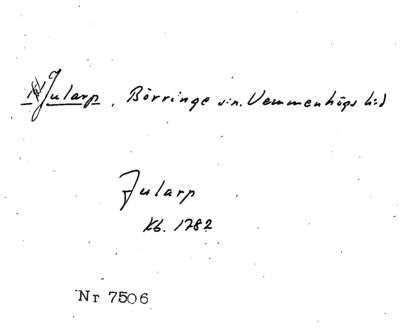 Jularp, Börringe sn. Vemmenhögs hd
Jularp
Kb. 1782
Nr 7506